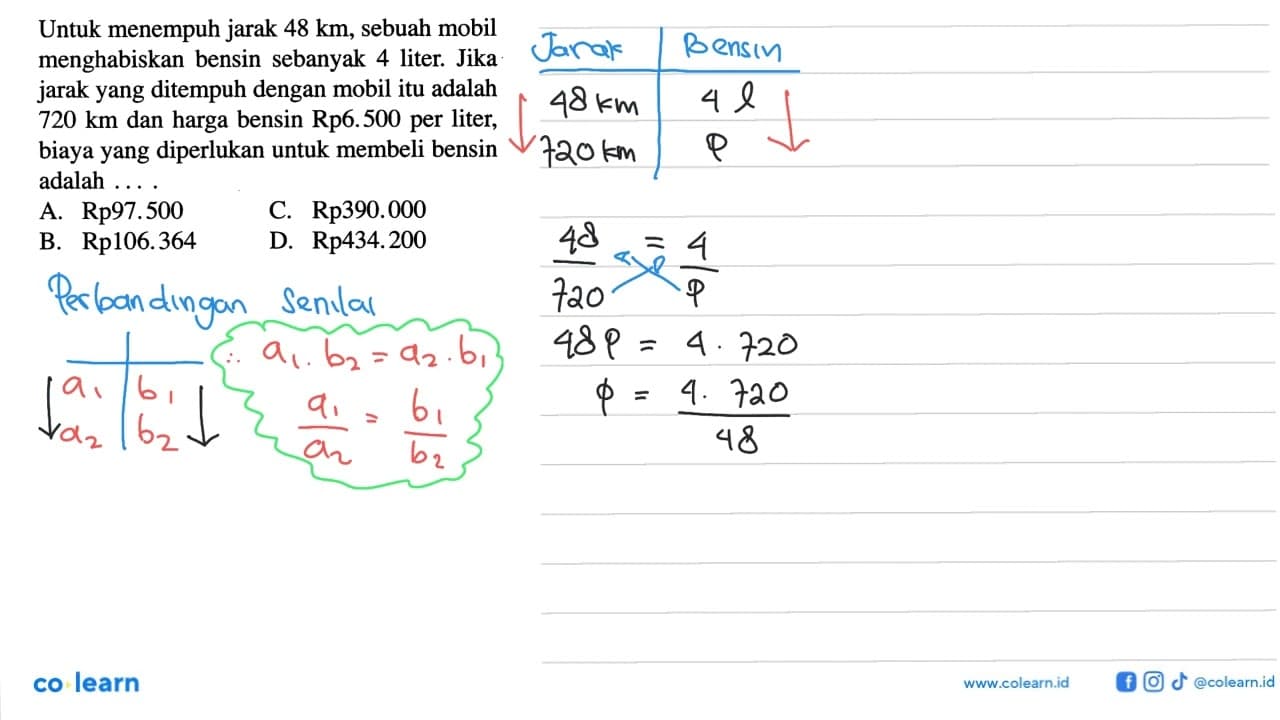 Untuk menempuh jarak 48 km, sebuah mobil
menghabiskan bensin sebanyak 4 liter. Jika
jarak yang ditempuh dengan mobil itu adalah
720 km dan harga bensin Rp6.500 per liter,
biaya yang diperlukan untuk membeli bensin
adalah ....
A. Rp97.500 C. Rp390.000
B. Rp106.364 D. Rp434.200
Perbandingan Senilai
a1 b1
a2 b2
∴ a1 . b2 = a2 . b1
a1 = b1
a2 b2
Jarak Bensin
48 km 4 l
720 km P
48 = 4
720 P
48 P = 4 . 720
P = 4 . 720
48
co learn
www.colearn.id
@colearn.id